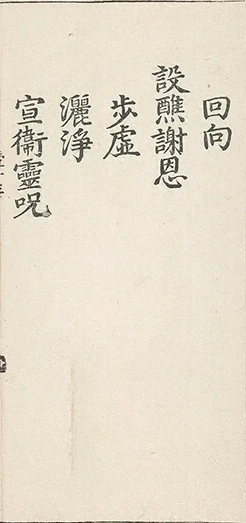 回向
設醮謝恩
步虛
灑淨
宣衞靈呪